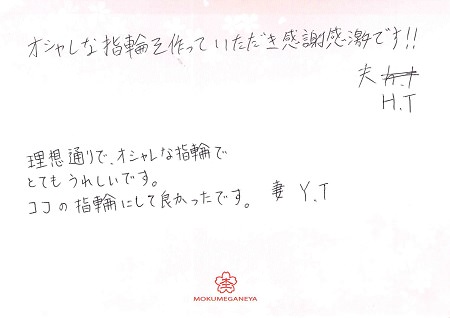 オシャレな指輪を作っていただき感謝感激です!!
夫
H.T
理想通りで、オシャレな指輪で
とてもうれしいです。
ココの指輪にして良かったです。 妻 Y.T
MOKUMEGANEYA